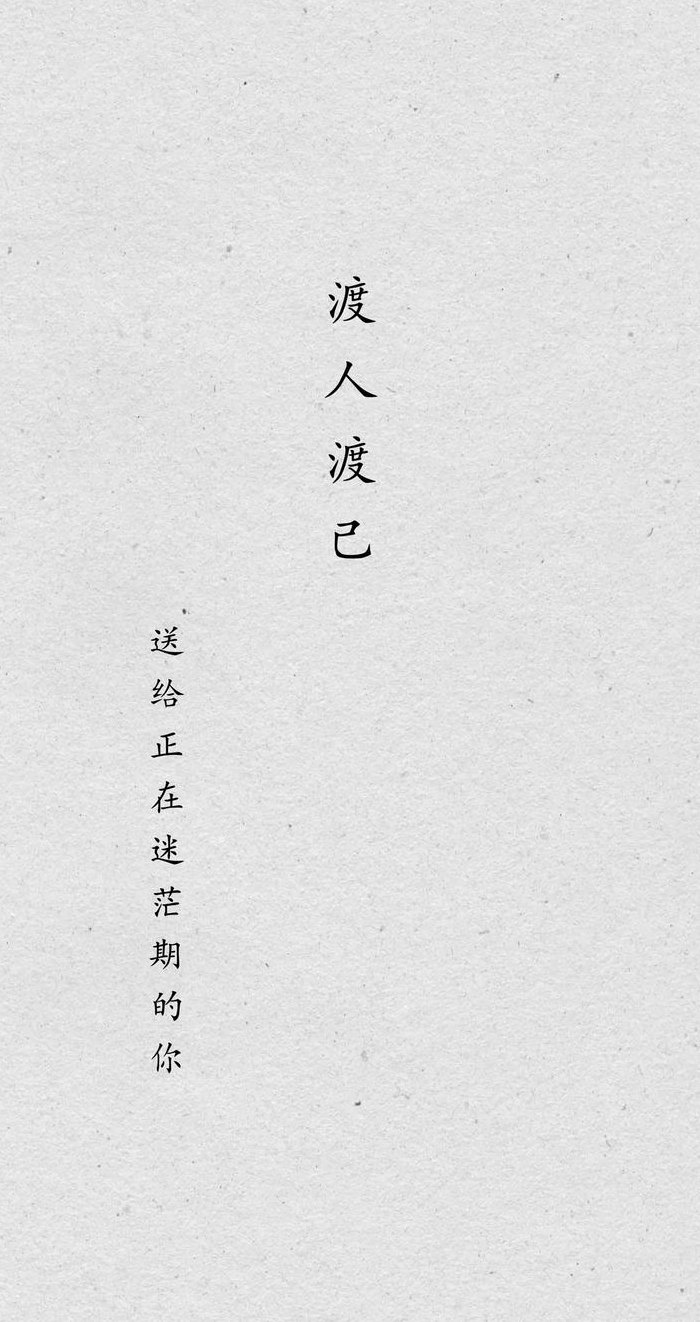 渡人渡己
送给正在迷茫期的你